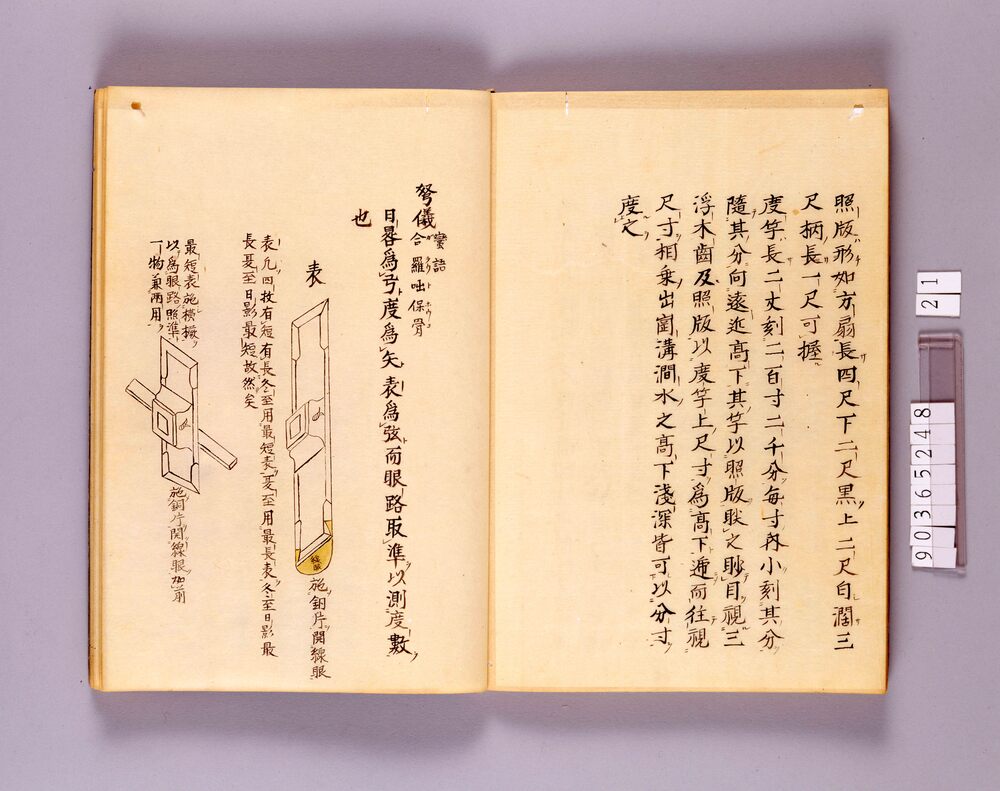 照版形如方扇長四尺下二尺黒上二尺白濶三
尺柄長一尺可握
度竿長二丈刻二百寸二千分毎寸内小刻其分
隨其分向遠近高下其竿以照版映之眇目視三
浮木齒及照版以度竿上尺寸為高下遞而往視
尺寸相乗山岡溝澗水之高下淺深皆可以分寸
度之
弩儀 蠻語
合羅咄保骨
クワ ト ホウコ
日晷爲弓度爲矢表爲弦而眼路取準以測度數
也
表
線眼
施銅片開線眼
表凢四枚有短有長冬至用最短表夏至用最長表冬至日影最
長夏至日影最短故然矣
最短表施横橛
以爲眼路照準
一物兼兩用
施銅片開線眼如前
21
90365248